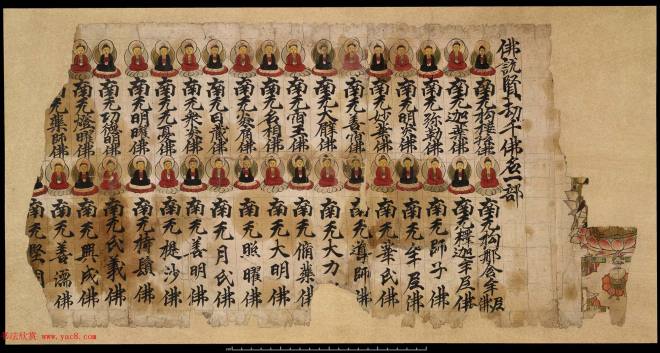 佛説賢劫千佛名一部
南无拘樓孫佛
南无拘那含牟尼佛
南无迦葉佛
南无釋迦牟尼佛
南无弥勒佛
南无師子佛
南无明炎佛
南无牟尼佛
南无妙華佛
南无華氏佛
南无善佛
南无導師佛
南无大臂佛
南无大力
南无宿王佛
南无脩藥佛
南无名相佛
南无大明佛
南无炎肩佛
南无照曜佛
南无日藏佛
南无月氏佛
南无衆炎佛
南无善明佛
南无无憂佛
南无提沙佛
南无明曜佛
南无持鬘佛
南无功德明佛
南无氏義佛
南无燈曜佛
南无興盛佛
南无藥師佛
南无善濡佛
南无堅
书法欣赏 www.yac8.com